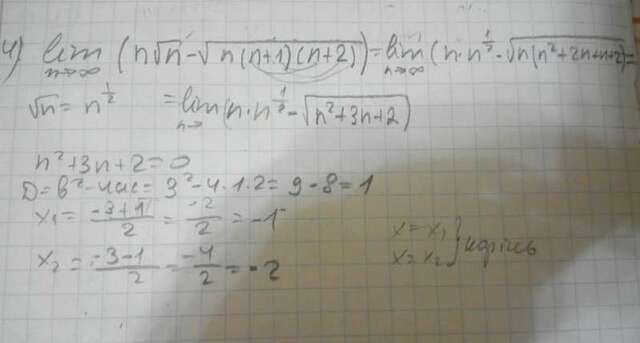 4) lim n→∞ (n√n - √n(n+1)(n+2)) = lim n→∞ (n·n^1/2 - √n(n²+2n+n+2) =
√n = n^1/2 = lim n→ (n·n^1/2 - √n²+3n+2)
n²+3n+2=0
D=b²-4ac= 3²-4·1·2= 9-8=1
x₁= -3+1/2 = -2/2 = -1
x₂= -3-1/2 = -4/2 = -2
x=x₁
x=x₂ } корінь